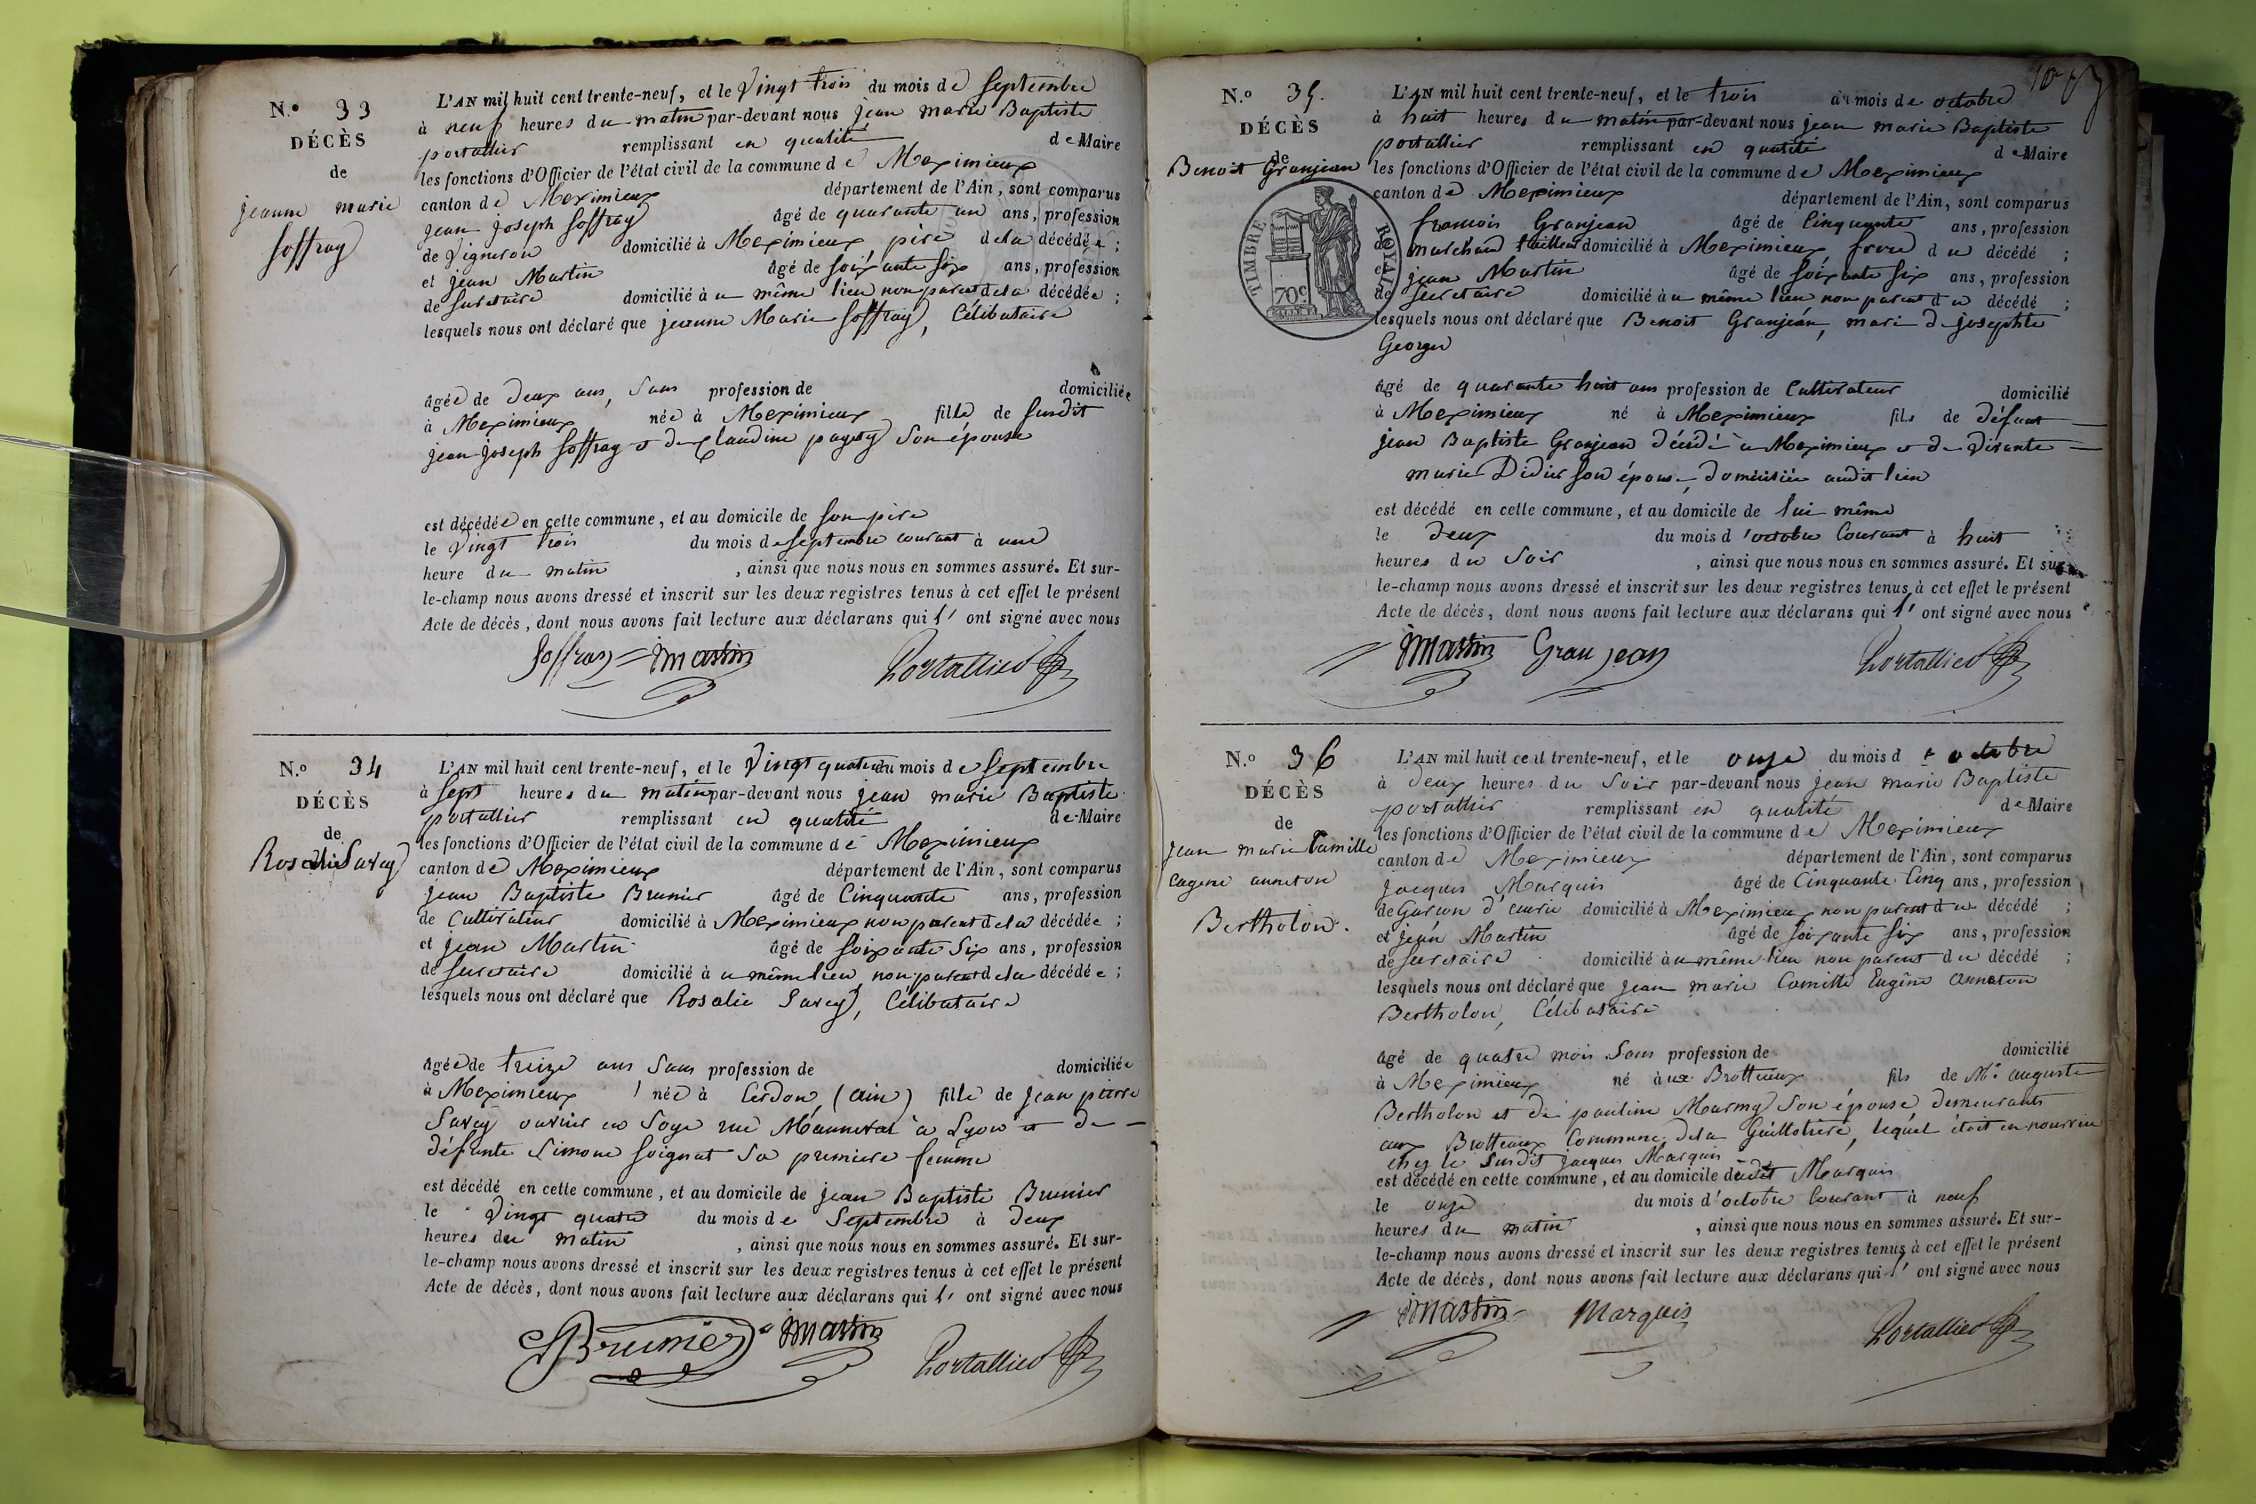 N.o 33
DÉCÈS
de
jeanne marie
Soffray
L'AN mil huit cent trente-neuf, et le Vingt trois du mois de Septembre
à neuf heures du matin par-devant nous jean marie Baptiste
portallier remplissant en qualité de Maire
les fonctions d'Officier de l'état civil de la commune de Meximieux
canton de Meximieux département de l'Ain, sont comparus
jean joseph Soffray âgé de quarante un ans, profession
de Vigneron domicilié à Meximieux, père de la décédée ;
et jean Martin âgé de soixante six ans, profession
de Secretaire domicilié à u même lieu non parent de la décédée ;
lesquels nous ont déclaré que jeanne Marie Soffray, Célibataire
âgée de deux ans, Sans profession de domiciliée
à Meximieux née à Meximieux fille de Susdit
jean joseph Soffray et de Claudine Son épouse
est décédée en cette commune, et au domicile de Son père
le Vingt trois du mois de Septembre courant à une
heure du matin, ainsi que nous nous en sommes assuré. Et sur-
le-champ nous avons dressé et inscrit sur les deux registres tenus à cet effet le présent
Acte de décès, dont nous avons fait lecture aux déclarans qui l' ont signé avec nous
Soffray Martin Portallier
N.o 34
DÉCÈS
de
Rosalie Savey
L'AN mil huit cent trente-neuf, et le Vingt quatre du mois de Septembre
à Sept heures du matin par-devant nous jean marie Baptiste
portallier remplissant en qualité de Maire
les fonctions d'Officier de l'état civil de la commune de Meximieux
canton de Meximieux département de l'Ain, sont comparus
Jean Baptiste Brunier âgé de Cinquante ans, profession
de Cultivateur domicilié à Meximieux non parent de la décédée ;
et jean Martin âgé de Soixante Six ans, profession
de Secretaire domicilié à u même lieu non parent de la décédée ;
lesquels nous ont déclaré que Rosalie Savey, Célibataire
âgée de treize ans Sans profession de domiciliée
à Meximieux née à Cerdon (ain) fille de Jean pierre
Savey ouvrier en Soye rue à Lyon et de
défunte Simone Soignat Sa premiere femme
est décédé en cette commune, et au domicile de Jean Baptiste Brunier
le Vingt quatre du mois de Septembre à deux
heures du matin, ainsi que nous nous en sommes assuré. Et sur-
le-champ nous avons dressé et inscrit sur les deux registres tenus à cet effet le présent
Acte de décès, dont nous avons fait lecture aux déclarans qui l' ont signé avec nous
Brunier Martin Portallier
N.o 35.
DÉCÈS
de
Benoit Granjean
TIMBRE ROYAL
70c
L'AN mil huit cent trente-neuf, et le trois du mois de octobre
à huit heures du matin par-devant nous jean marie Baptiste
portallier remplissant en qualité de Maire
les fonctions d'Officier de l'état civil de la commune de Meximieux
canton de Meximieux département de l'Ain, sont comparus
francois Granjean âgé de Cinquante ans, profession
de Marchand tailleur domicilié à Meximieux frere du décédé ;
et jean Martin âgé de Soixante Six ans, profession
de Secretaire domicilié à u même lieu non parent du décédé ;
lesquels nous ont déclaré que Benoit Granjean, mari de josephte
Georges
âgé de quarante huit ans profession de Cultivateur domicilié
à Meximieux né à Meximieux fils de défunt
jean Baptiste Granjean décédé a Meximieux et de Vivante
marie Didier Son épouse, domiciliée audit lieu
est décédé en cette commune, et au domicile de lui même
le deux du mois d'octobre Courant à huit
heures du Soir, ainsi que nous nous en sommes assuré. Et sur-
le-champ nous avons dressé et inscrit sur les deux registres tenus à cet effet le présent
Acte de décès, dont nous avons fait lecture aux déclarans qui l' ont signé avec nous
Martin Gran jean Portallier
N.o 36
DÉCÈS
de
Jean marie Camille
Eugene anneton
Bertholon.
L'AN mil huit cent trente-neuf, et le onze du mois d'octobre
à deux heures du Soir par-devant nous jean marie Baptiste
portallier remplissant en qualité de Maire
les fonctions d'Officier de l'état civil de la commune de Meximieux
canton de Meximieux département de l'Ain, sont comparus
Jacques Marquis âgé de Cinquante Cinq ans, profession
de Garcon d'ecurie domicilié à Meximieux non parent du décédé ;
et jean Martin âgé de soixante six ans, profession
de Secretaire domicilié à u même lieu non parent du décédé ;
lesquels nous ont déclaré que jean marie Camille Eugène anneton
Bertholon, Célibataire
âgé de quatre mois Sans profession de domicilié
à Meximieux né aux Brotteaux fils de Mr auguste
Bertholon et de pauline Son épouse demeurants
aux Brotteaux Commune de la Guillotiere, lequel étoit en nourrice
chez le Susdit jacques Marquis
est décédé en cette commune, et au domicile dudit Marquis
le onze du mois d'octobre Courant à neuf
heures du matin, ainsi que nous nous en sommes assuré. Et sur-
le-champ nous avons dressé et inscrit sur les deux registres tenus à cet effet le présent
Acte de décès, dont nous avons fait lecture aux déclarans qui l' ont signé avec nous
Martin Marquis Portallier